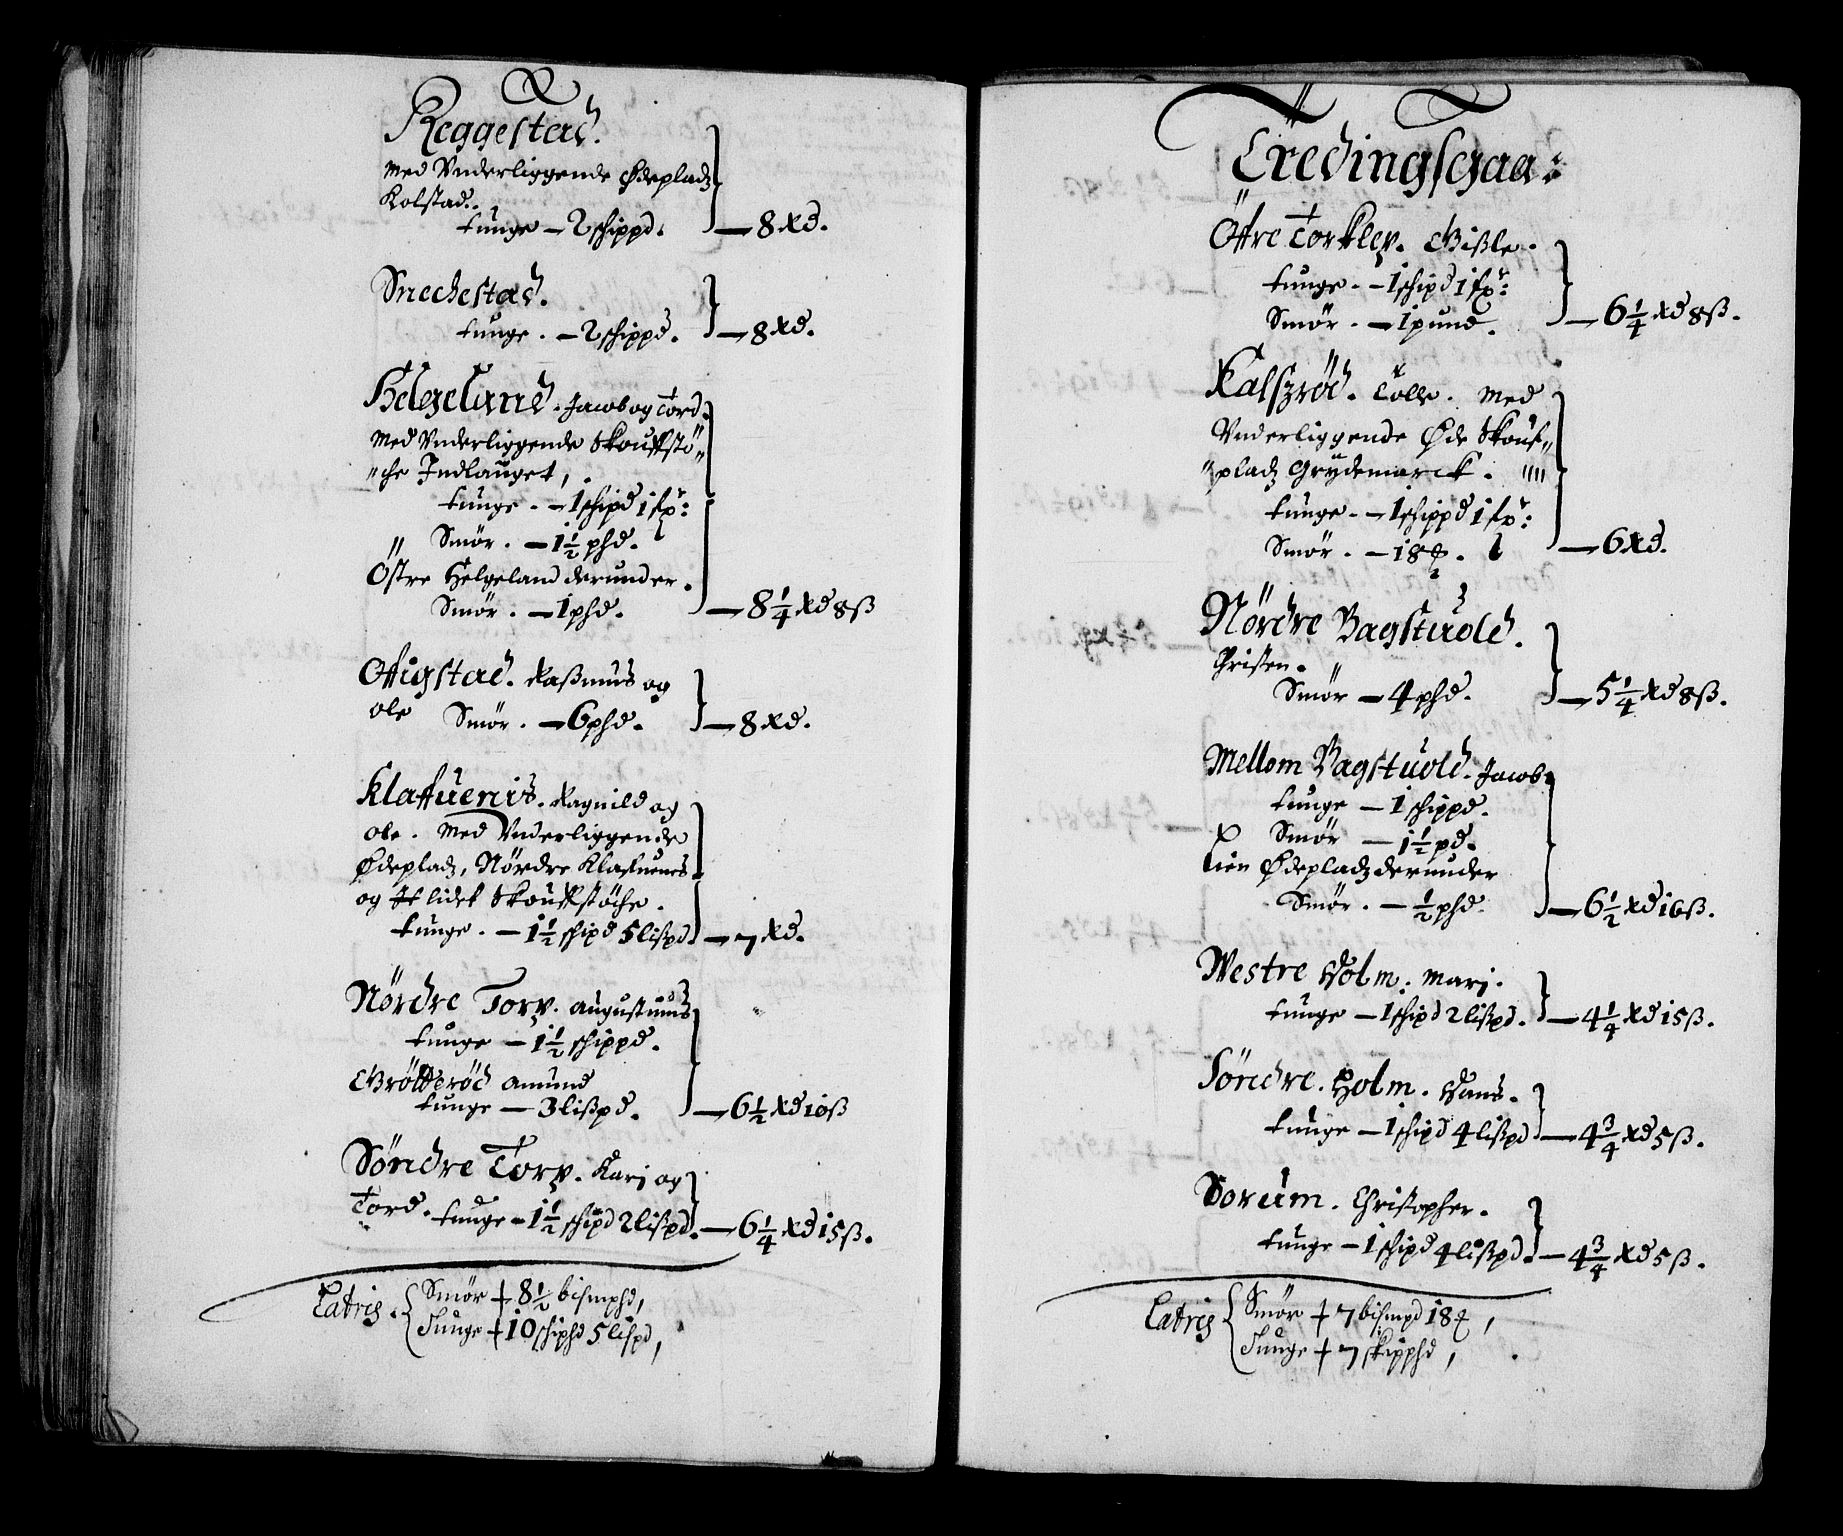 Reggestad.
med Vnderliggende Ødepladz
Kolstad.
tunge — 2 schippd. — 8 Rd.
Snechestad.
tunge. — 2 schippd. — 8 Rd.
Helgeland. Jacob og Tord.
med Vnderliggende Skouffstø"
"che Indlauget,
tunge. — 1 schipd 1 fr:
Smør. — 1½ phd.
Östre Helgeland derunder.
Smør. — 1 phd. — 8¼ Rd 8ß
Offigstad. Raßmus og
ole Smør. — 6 phd. — 8 Rd.
Klaffuenis. Ragnild og
ole. med Vnderliggende
Ødepladz, Nördre Klafuenes
og It lidet Skouffstöche.
tunge. — 1½ schipd 5 lißpd. — 7 Rd.
Nördre Torp. augustinus
tunge — 1½ schippd.
Grötterød amund
tunge — 3 lißpd. — 6½ Rd 10ß
Söndre Torp. Kari og
Tord. tunge — 1½ schipd 2 lißpd. — 6¼ Rd 15ß.
Latris. Smør + 8½ bismphd,
Tunge + 10 schiphd 5 lispd,
Tredingsgaa:
Öfre Torkilep. Gißle.
tunge. — 1 schipd 1 fr:
Smør. — 1 pund. — 6¼ Rd 8ß.
Kalszröd. Tolle. med
Vnderliggende Øde Skouf"
"pladz Grydemarck.
tunge. — 1 schippd 1 fr:
Smør. — 18 ₰. — 6 Rd.
Nördre Bagstuold.
Christen.
Smør — 4 phd. — 5¼ Rd 8ß.
Mellom Bagstuold. Jacob
tunge — 1 schippd.
Smør — 1½ pd.
 Ødepladz derunder
Smør. — ½ phd. — 6½ Rd 16ß.
Westre Holm. Mari.
tunge — 1 schipd 2 lißpd. — 4¼ Rd 15ß.
Söndre. Holm. Hans.
tunge — 1 schipd 4 lißpd — 4¾ Rd 5ß.
Sorum. Christopher.
tunge — 1 schipd 4 lißpd. — 4¾ Rd 5ß.
Latris Smør + 7 bismpd 18 ₰,
Tunge + 7 skipphd,